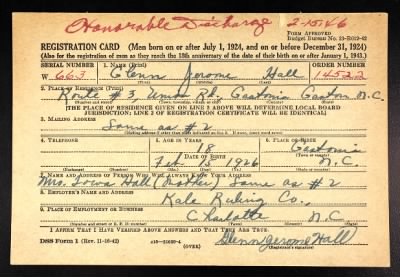 Honorable Discharge 2-15-46
FORM APPROVED
Budget Bureau No. 33-R012-42
REGISTRATION CARD (Men born on or after July 1, 1924, and on or before December 31, 1924)
(Also for the registration of men as they reach the 18th anniversary of the date of their birth on or after January 1, 1943.)
SERIAL NUMBER 1. NAME (Print) ORDER NUMBER
W 663 Glenn Jerome Hall 14522
2. PLACE OF RESIDENCE (Print)
Route #3, Union Rd. Gastonia Gaston N.C.
[THE PLACE OF RESIDENCE GIVEN ON LINE 2 ABOVE WILL DETERMINE LOCAL BOARD
JURISDICTION; LINE 2 OF REGISTRATION CERTIFICATE WILL BE IDENTICAL]
3. MAILING ADDRESS
Same as #2
4. TELEPHONE 5. AGE IN YEARS 6. PLACE OF BIRTH
18 Gastonia
DATE OF BIRTH
Feb 15 1926 N.C.
7. NAME AND ADDRESS OF PERSON WHO WILL ALWAYS KNOW YOUR ADDRESS
Mrs. Hall (Mother) Same as #2
8. EMPLOYER'S NAME AND ADDRESS
Kale Ruling Co.,
9. PLACE OF EMPLOYMENT OR BUSINESS
Charlotte N.C.
I AFFIRM THAT I HAVE VERIFIED ABOVE ANSWERS AND THAT THEY ARE TRUE.
DSS Form 1 (Rev. 11-16-42) (OVER) Glenn Jerome Hall
(Registrant's signature)